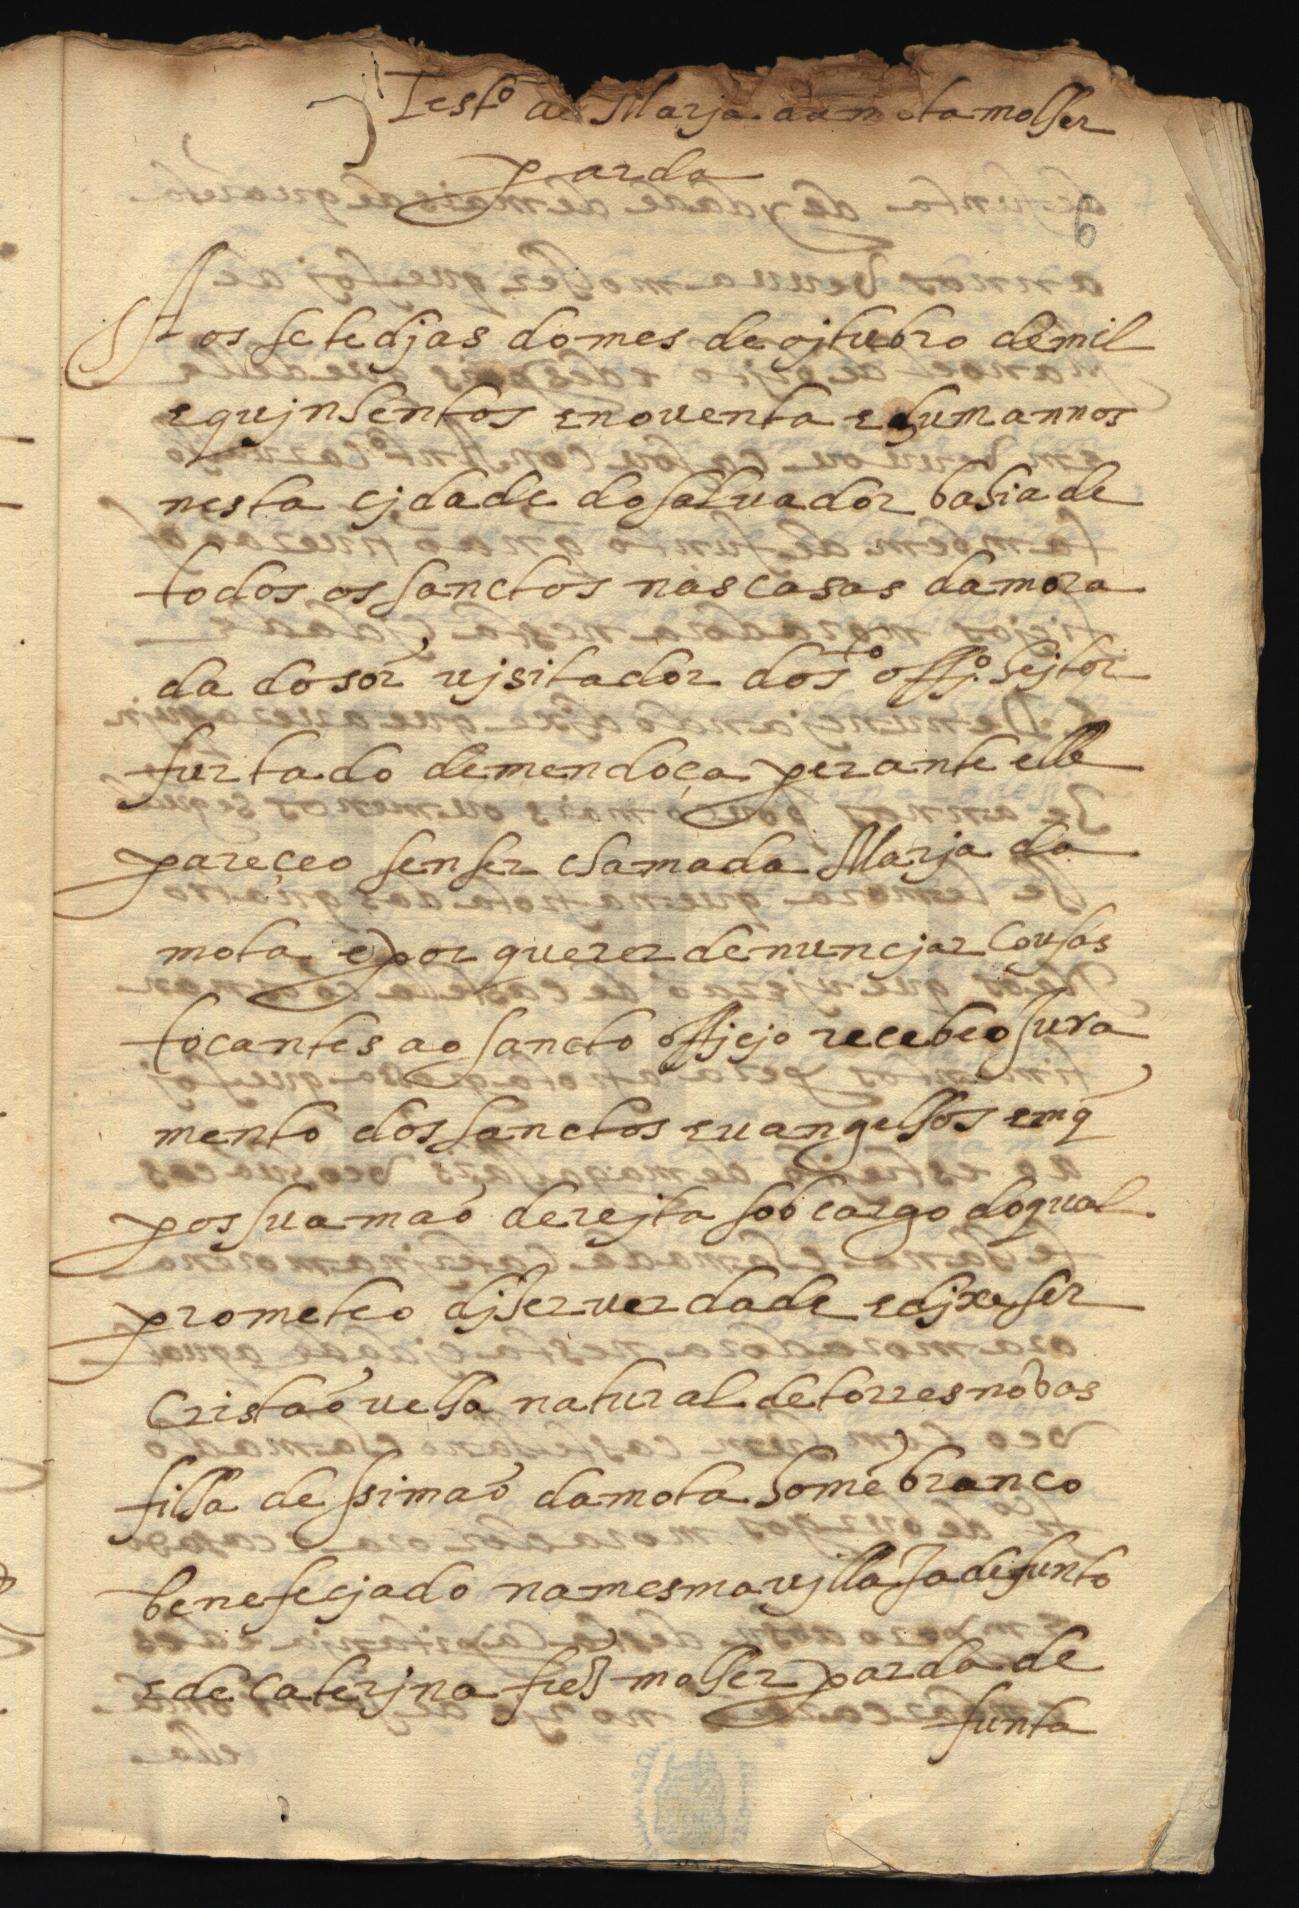 Testo de Marja da mota molher
parda
6
Aos sete djas do mes de ojtubro de mil
e qujnhentos e noventa e hum annos
nesta cjdade do salvador bahia de
todos os sanctos nas casas da mora
da do sõr vjsitador do sto offjo hejtor
furtado de mendoça perante elle
pareçeo sem ser chamada Marja da
mota e por querer denuncjar cousas
tocantes ao sancto offjcjo recebeo Jura
mento dos sanctos evangelhos em q̃
pos sua maõ derejta sob cargo do qual
prometeo djzer verdade e djxe ser
Cristaõ velha natural de torres novas
filha de ssimaõ da mota homẽ branco
benefecjado na mesma vjlla Ja defunto
e de Caterjna frẽz molher parda de
funta